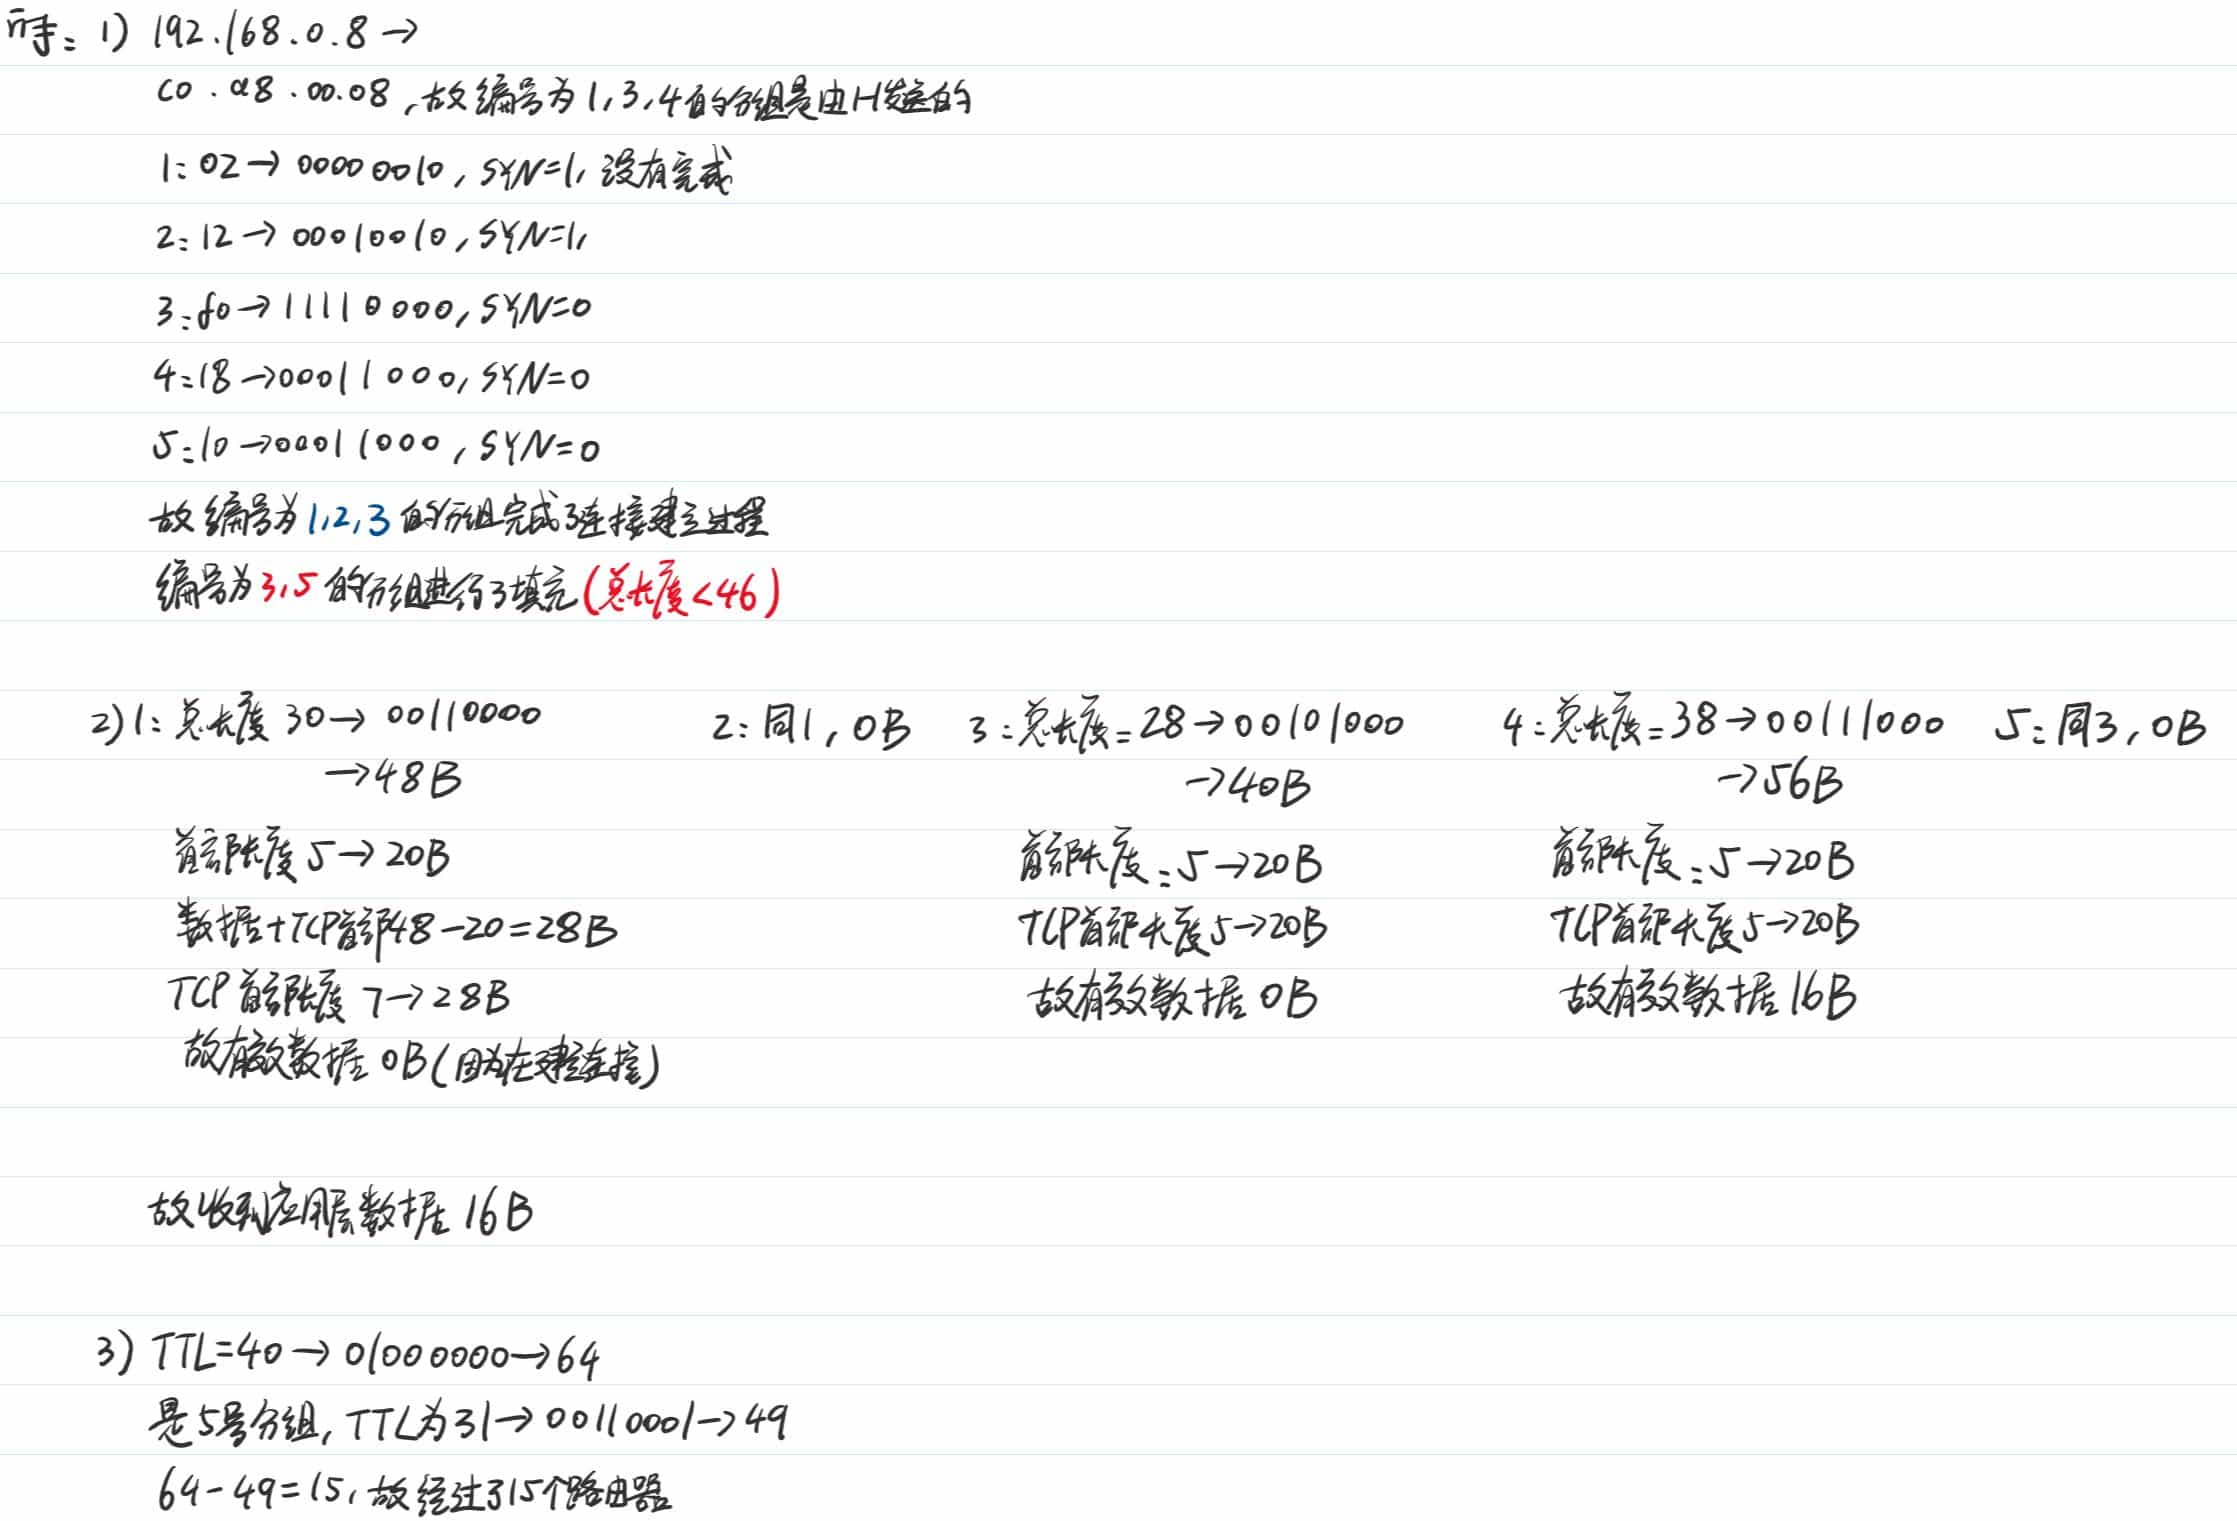 1) 192.168.0.8→
c0.a8.00.08,故编号为1,3,4的分组是由H发送的
1:02→00000010,SYN=1,没有完成
2:12→00010010,SYN=1,
3:f0→11110000,SYN=0
4:18→00011000,SYN=0
5:10→00011000,SYN=0
故编号为1,2,3的分组完成了连接建立过程
编号为3,5的分组进行了填充(总长度<46)
2)1:总长度30→00110000
→48B
首部长度5→20B
数据+TCP首部48-20=28B
TCP首部长度7→28B
故有效数据0B(因为在建立连接)
2:同1,0B
3:总长度=28→00101000
→40B
首部长度=5→20B
TCP首部长度5→20B
故有效数据0B
4:总长度=38→00111000
→56B
首部长度=5→20B
TCP首部长度5→20B
故有效数据16B
5:同3,0B
故收到应用层数据16B
3)TTL=40→01000000→64
是5号分组,TTL为31→00110001→49
64-49=15,故经过了15个路由器